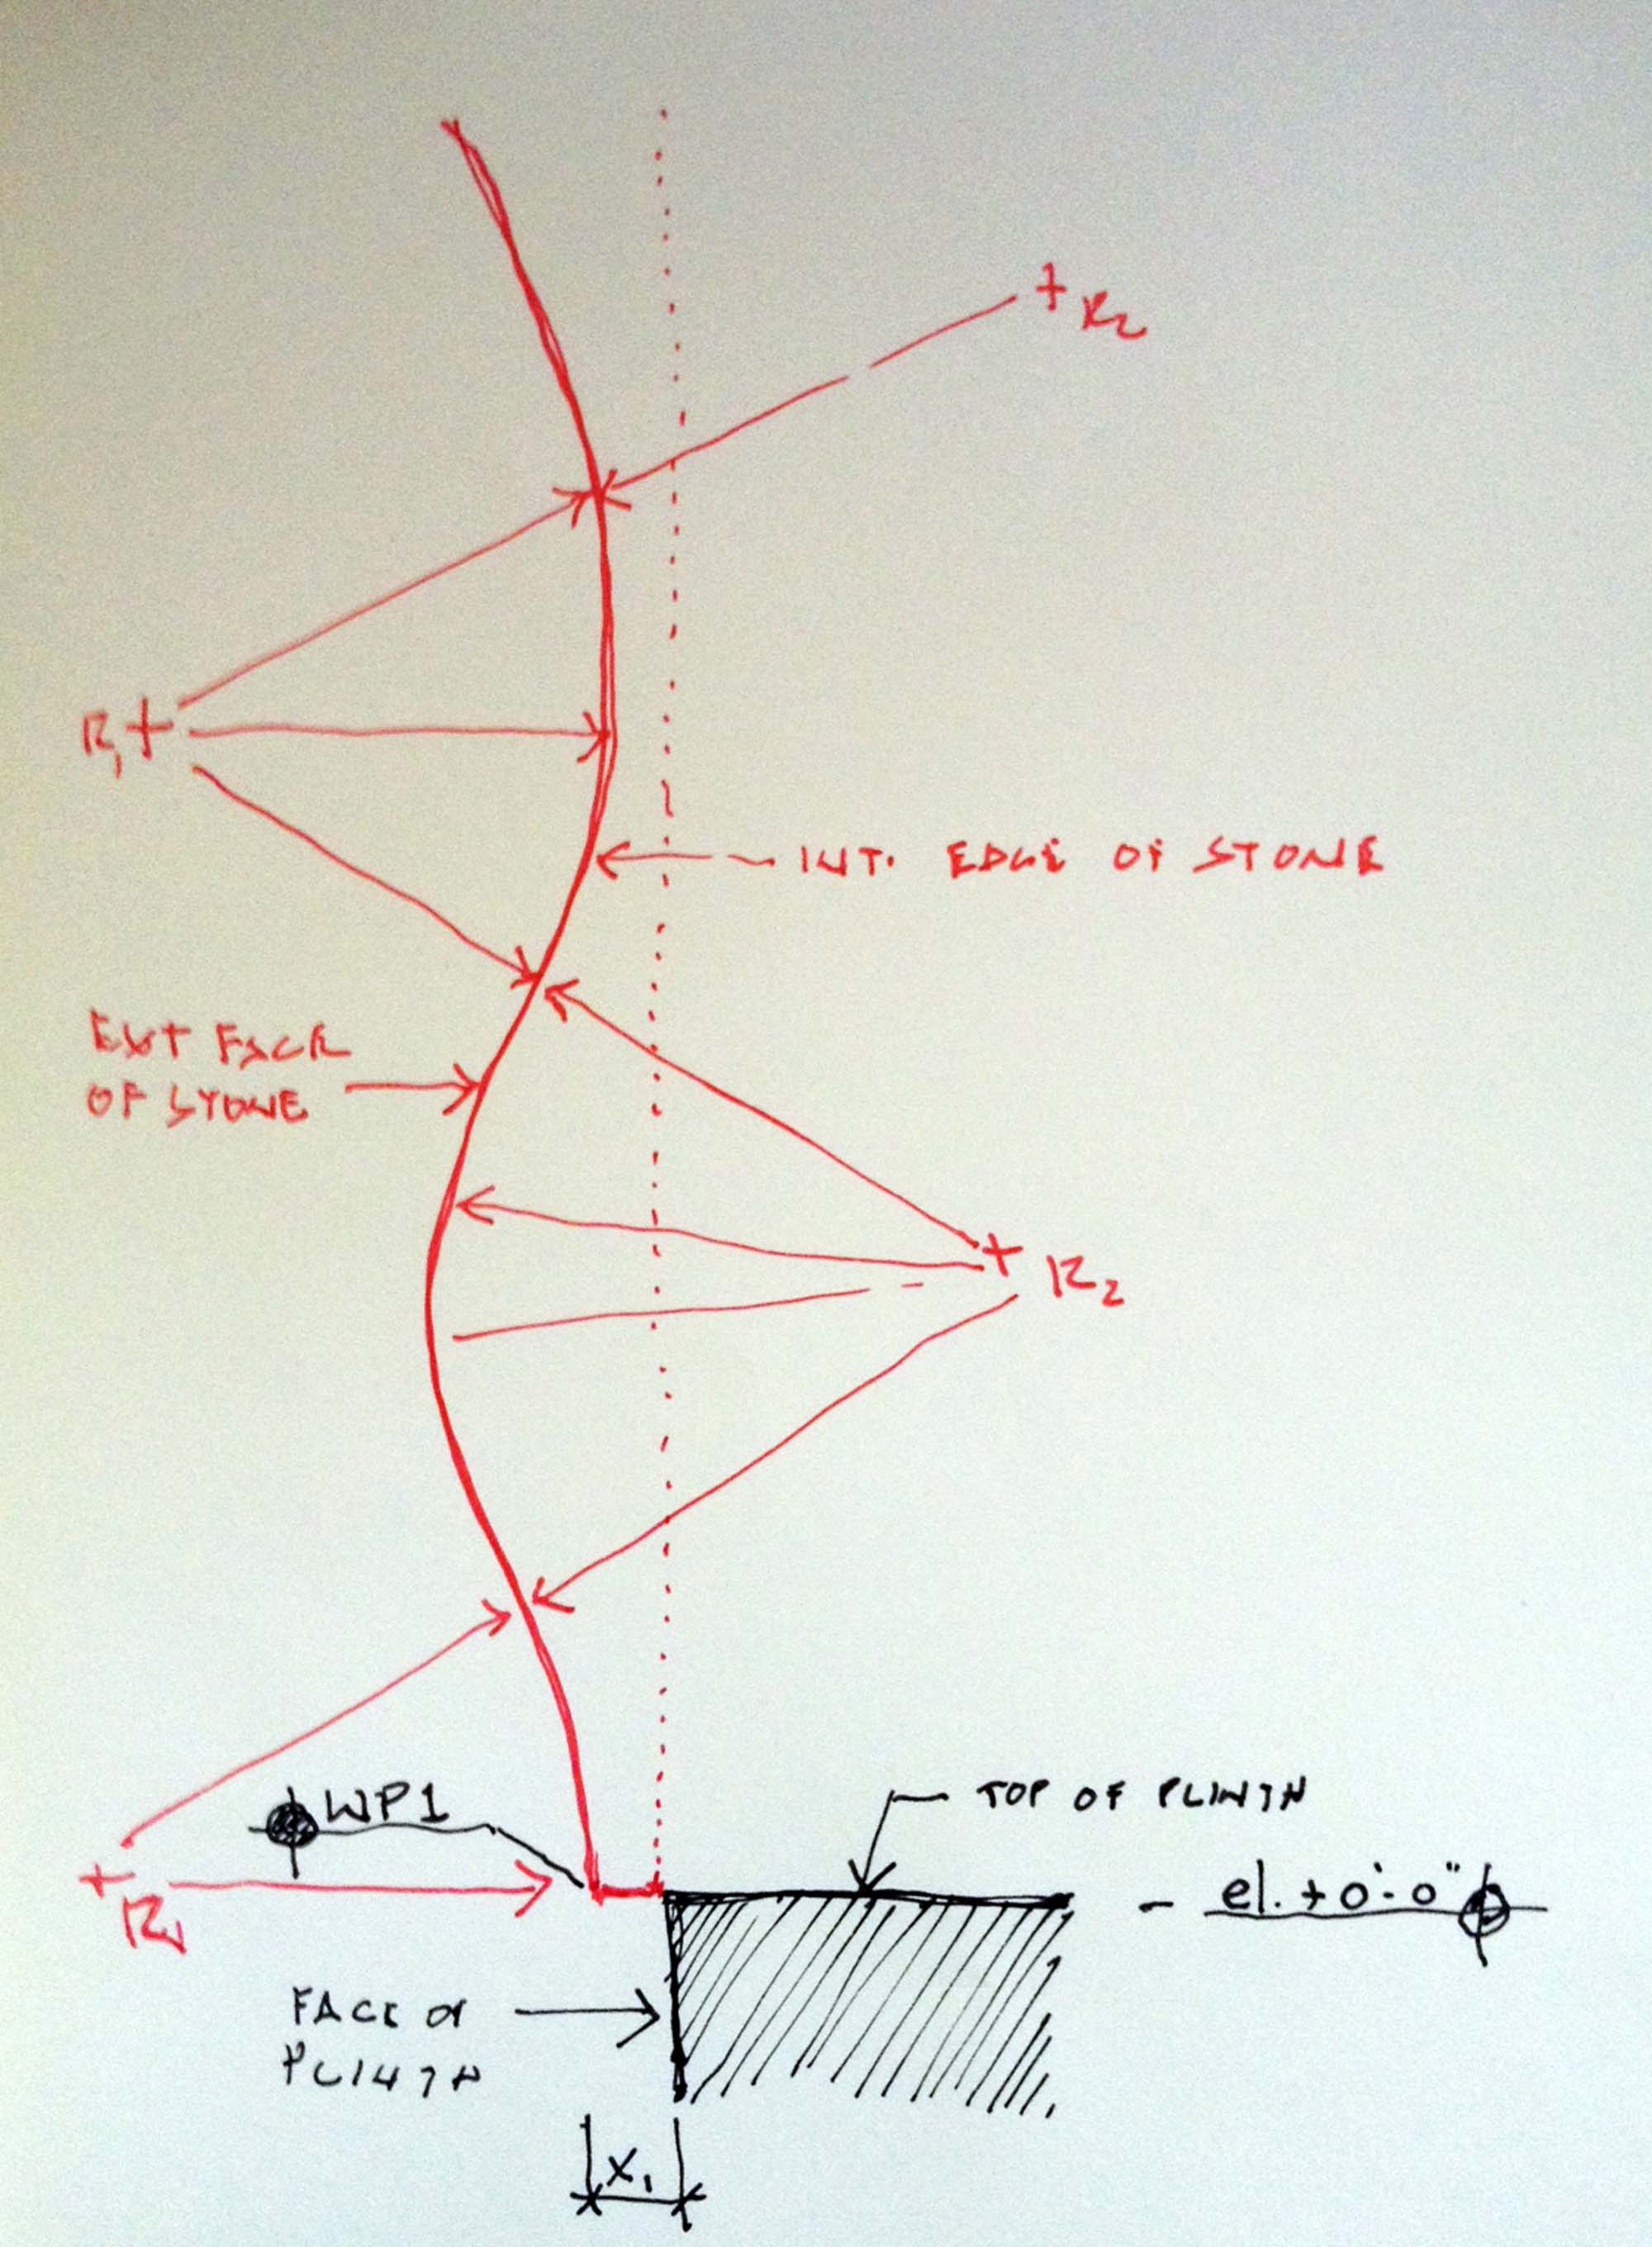 R2
R1
INT. EDGE OF STONE
EXT FACE
OF STONE
R2
WP1
TOP OF PLINTH
R1
el. +0'-0"
FACE OF
PLINTH
X1